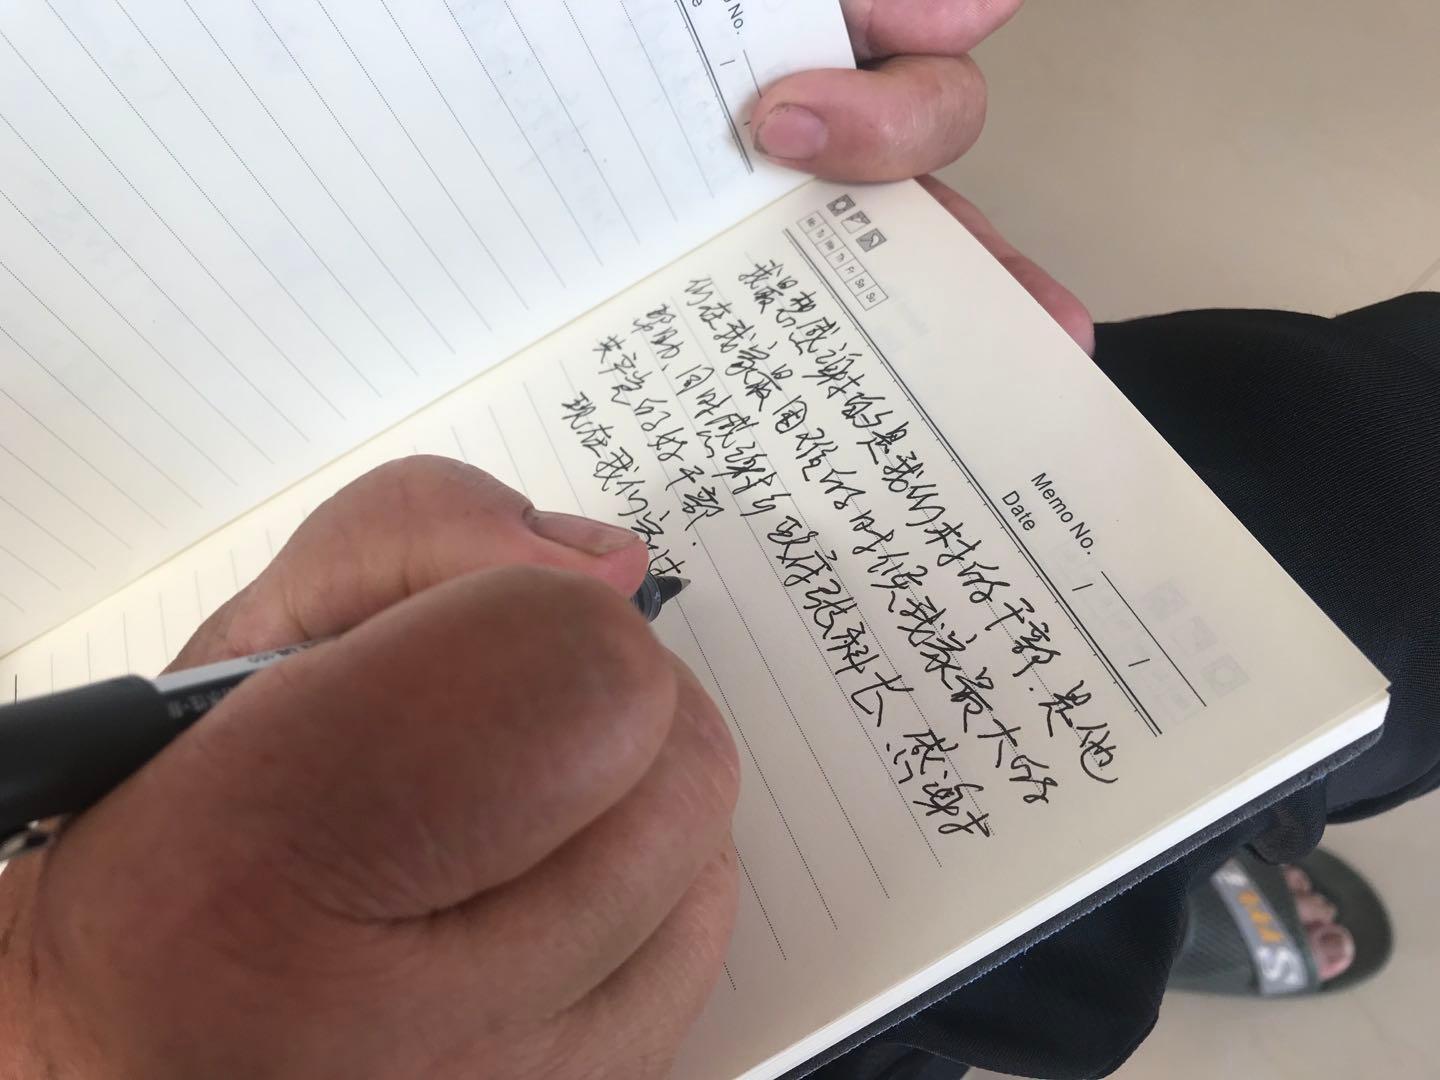 Memo No.
Date / /
Mo Tu We Th Fr Sa Su
我最想感谢的是我们村的干部.是他
们在我家最困难的时候我家最大的
帮助.同时感谢 政府张科长.感谢
共产党的好干部.
现在我们家
No.